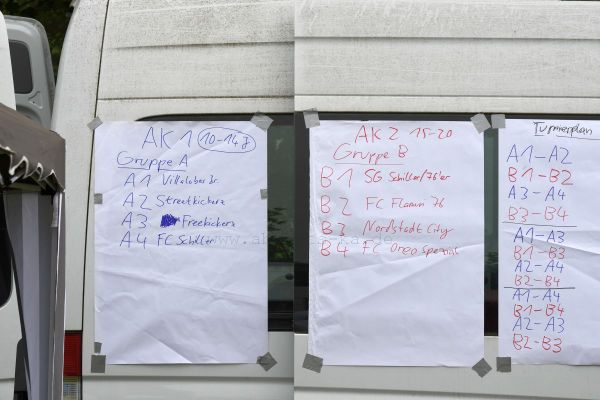 AK 1 10-14 J
Gruppe A
A1
A2 Streetkickerz
A3 Freekickerz
A4 FC Schiller
AK 2 15-20
Gruppe B
B1 SG Schiller/76'er
B2 FC Flamm 76
B3 Nordstadt City
B4 FC Oreo Spezial
Turnierplan
A1-A2
B1-B2
A3-A4
B3-B4
A1-A3
B1-B3
A2-A4
B2-B4
A1-A4
B1-B4
A2-A3
B2-B3